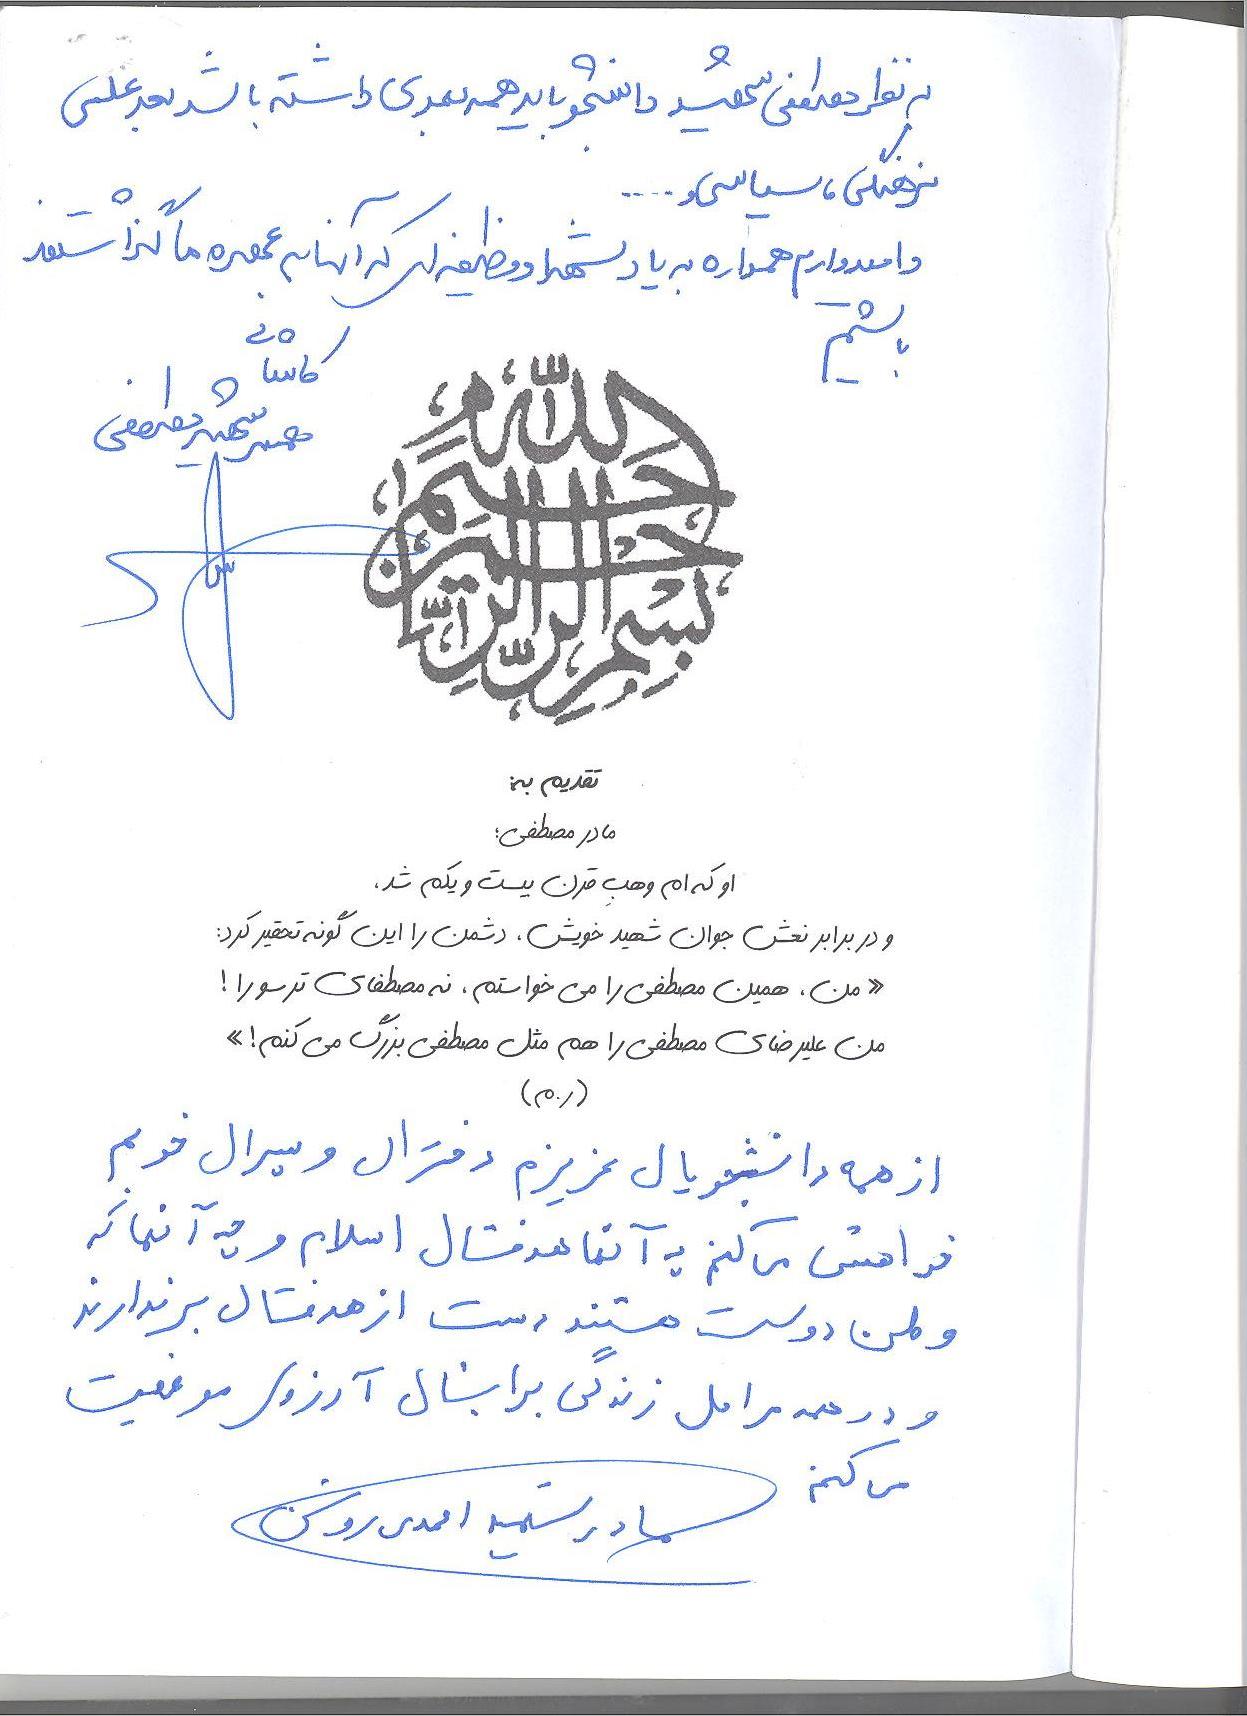 به نظر مصطفی شهید دانشجو باید همه بعدی داشته باشد بعد علمی
فرهنگی، سیاسی و ....
و امیدوارم همواره به یاد شهدا و وظیفه ای که آنها به عهده ما گذاشتند
باشیم
کاشانی
همسر شهید مصطفی
بسم الله الرحمن الرحیم
تقدیم به:
مادر مصطفی؛
او که ام وهبِ قرن بیست و یکم شد.
و در برابر نعش جوان شهید خویش، دشمن را این گونه تحقیر کرد:
« من، همین مصطفی را می خواستم، نه مصطفای ترسو را !
من علیرضای مصطفی را هم مثل مصطفی بزرگ می کنم! »
(ر.م)
از همه دانشجویان عزیزم دختران و پسران خوبم
خواهش می کنم چه آنها هدفشان اسلام و چه آنها که
وطن دوست هستند دست از هدفشان برندارند
و در همه مراحل زندگی برایشان آرزوی موفقیت
می کنم
مادر شهید احمدی روشن